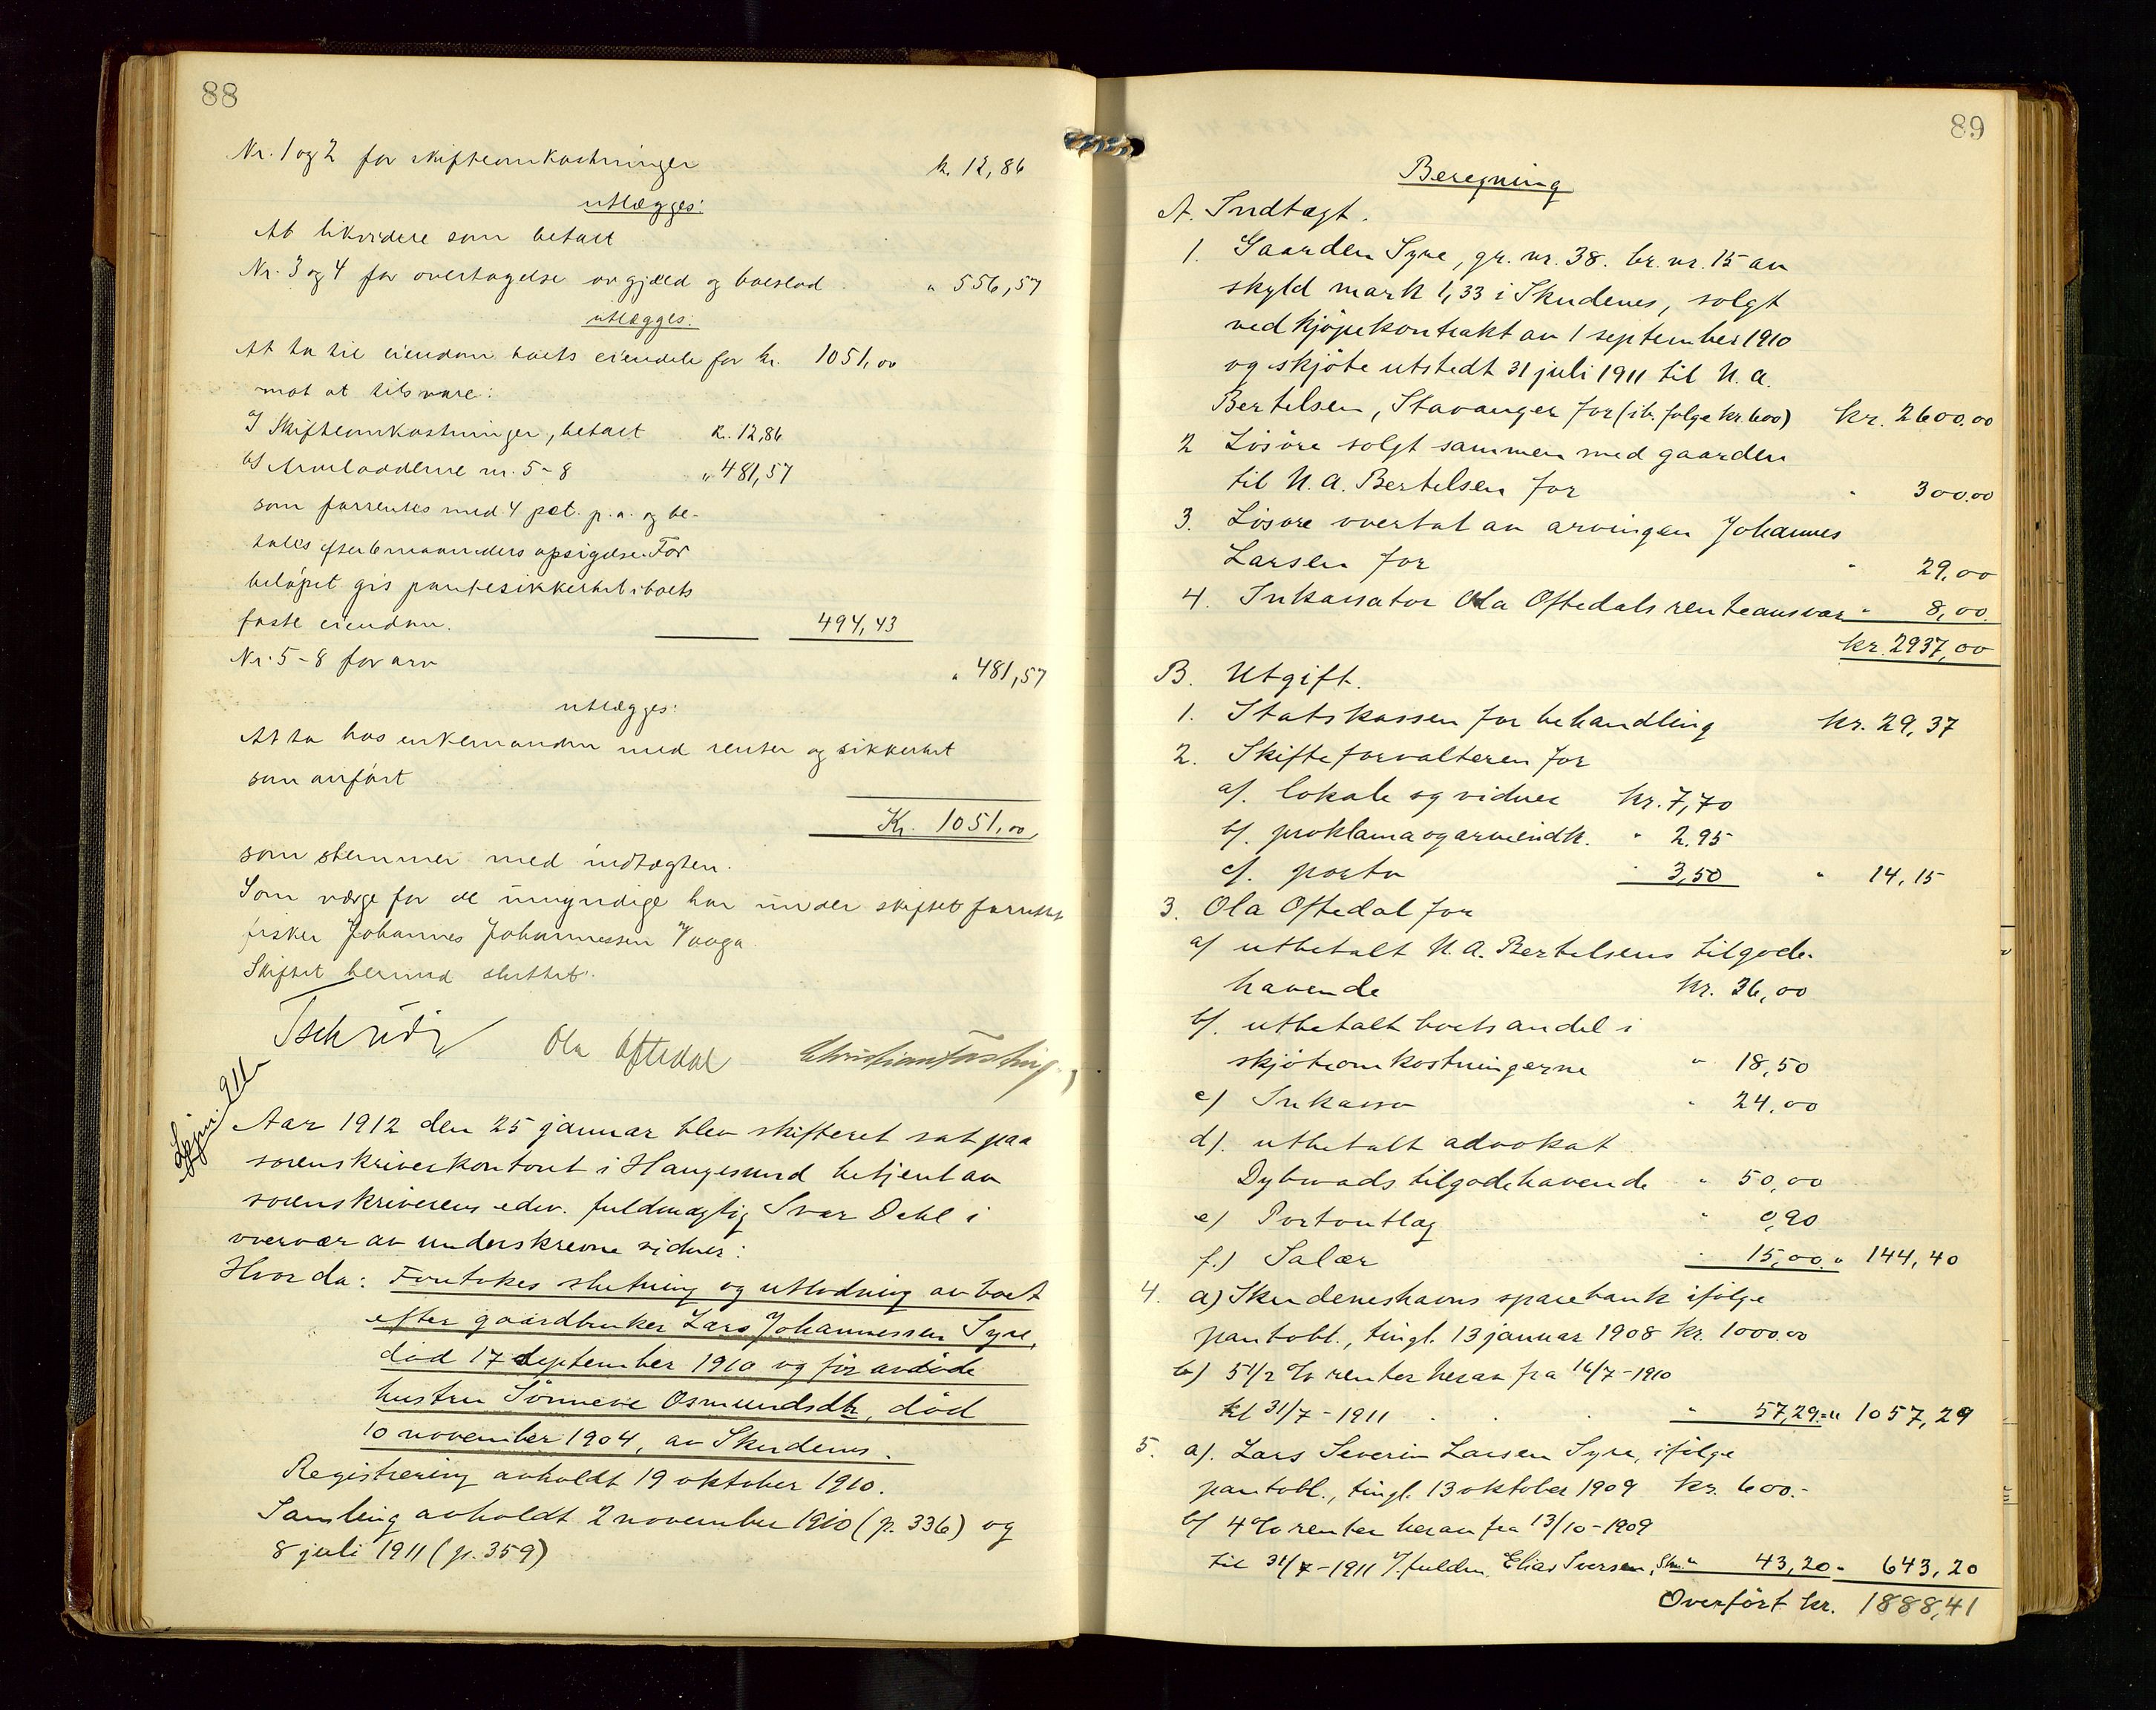 88
Nr. 1 og 2 for skifteomkostninger kr. 12,86
utlægges:
At likvidere som betalt
Nr. 3 og 4 for overtagelse av gjæld og boeslod " 556,57
utlægges:
At ta til eiendom boets eiendele for kr. 1051,00
mot at tilsvare:
a) Skifteomkostninger, betalt kr. 12,86
b) Arvelodderne nr. 5-8 " 481,57
som forrentes med 4 pct. p.a. og be-
tales efter 6 maaneders opsigelse. For
beløpet gis pantesikkerhet i boets
faste eiendom. 494,43
Nr. 5-8 for arv " 481,57
utlægges:
At ta hos enkemanden med renter og sikkerhet
som anført
Kr. 1051,00
som stemmer med indtægten.
Som værge for de umyndige har under skiftet
fisker Johannes Johannessen
Skiftet hermed sluttet.
Ola Oftedal
Aar 1912 den 25 januar blev skifteret sat paa
sorenskriverkontoret i Haugesund betjent av
sorenskriverens edsv. fuldmægtig Ivar Dahl i
overvær av underskrevne vidner:
Hvorda: Foretokes slutning og utlodning av boet
efter gaardbruker Lars Johannessen Syre,
død 17 september 1910 og før avdøde
hustru Sønneve Osmundsdtr, død
10 november 1904, av Skudenes.
Registrering avholdt 19 oktober 1910.
Samling avholdt 2 november 1910 (p. 336) og
8 juli 1911 (p. 359)
89
Beregning
A. Indtægt.
1. Gaarden Syre, gr. nr. 38. br. nr. 15 av
skyld mark 1,33 i Skudenes, solgt
ved kjøpekontrakt av 1 september 1910
og skjøte utstedt 31 juli 1911 til N. A.
Bertelsen, Stavanger for (ib. følge kr. 600) kr. 2600.00
2 Løsøre solgt sammen med gaarden
til N. A. Bertelsen for " 300.00
3. Løsøre overtat av arvingen Johannes
Larsen for " 29,00
4. Inkassator Ola Oftedals renteansvar " 8,00.
kr. 2937,00
B. Utgift.
1. Statskassen for behandling kr. 29,37
2. Skifteforvalteren for
a). lokale og vidner kr. 7,70
b). proklama og arveindk. " 2.95
c). porto " 3,50 " 14,15
3. Ola Oftedal for
a) utbetalt N. A. Bertelsens tilgode-
havende kr. 36,00
b). utbetalt boets andel i
skjøteomkostningerne " 18,50
c) Inkasso " 24,00
d). utbetalt advokat
Dybwads tilgodehavende " 50,00
e) Portoutlæg " 0,90
f.) Salær " 15,00. " 144,40
4. a) Skudeneshavns sparebank ifølge
pantobl., tingl. 13 januar 1908 kr. 1000.00
b) 5 1/2 % renter herav fra 16/7-1910
til 31/7-1911 " 57,29 = " 1057,29
5. a). Lars Severin Larsen Syre, ifølge
pantobl., tingl. 13 oktober 1909 kr. 600.-
b) 4 % renter herav fra 13/10-1909
til 31/7-1911 v/ fuldm. Elias Iversen, " 43,20 " 643,20
Overført kr. 1888,41